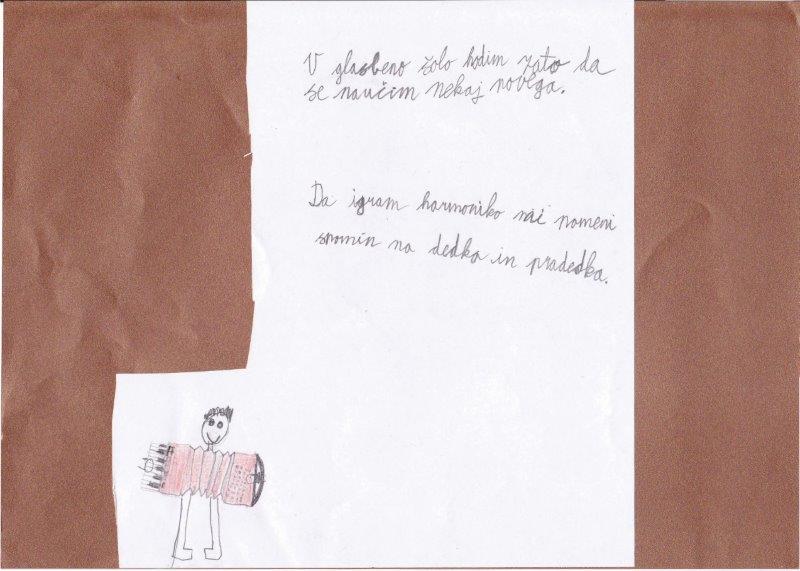 V glasbeno šolo hodim zato da
se naučim nekaj novega.
Da igram harmoniko mi pomeni
spomin na dedka in pradedka.